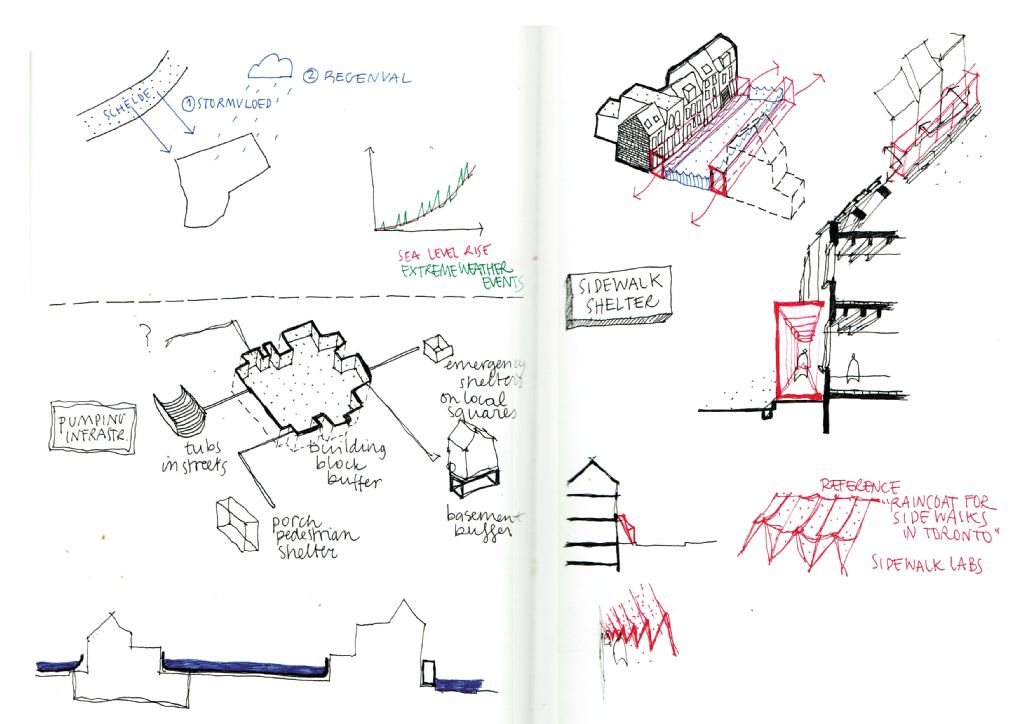 ② REGENVAL
SCHELDE
① STORMVLOED
SEA LEVEL RISE
EXTREME WEATHER
EVENTS
?
emergency
shelters
on local
squares
PUMPING
INFRASTR.
tubs
in streets
building
block
buffer
porch
pedestrian
shelter
basement
buffer
SIDEWALK
SHELTER
REFERENCE
"RAINCOAT FOR
SIDEWALKS
IN TORONTO"
SIDEWALK LABS